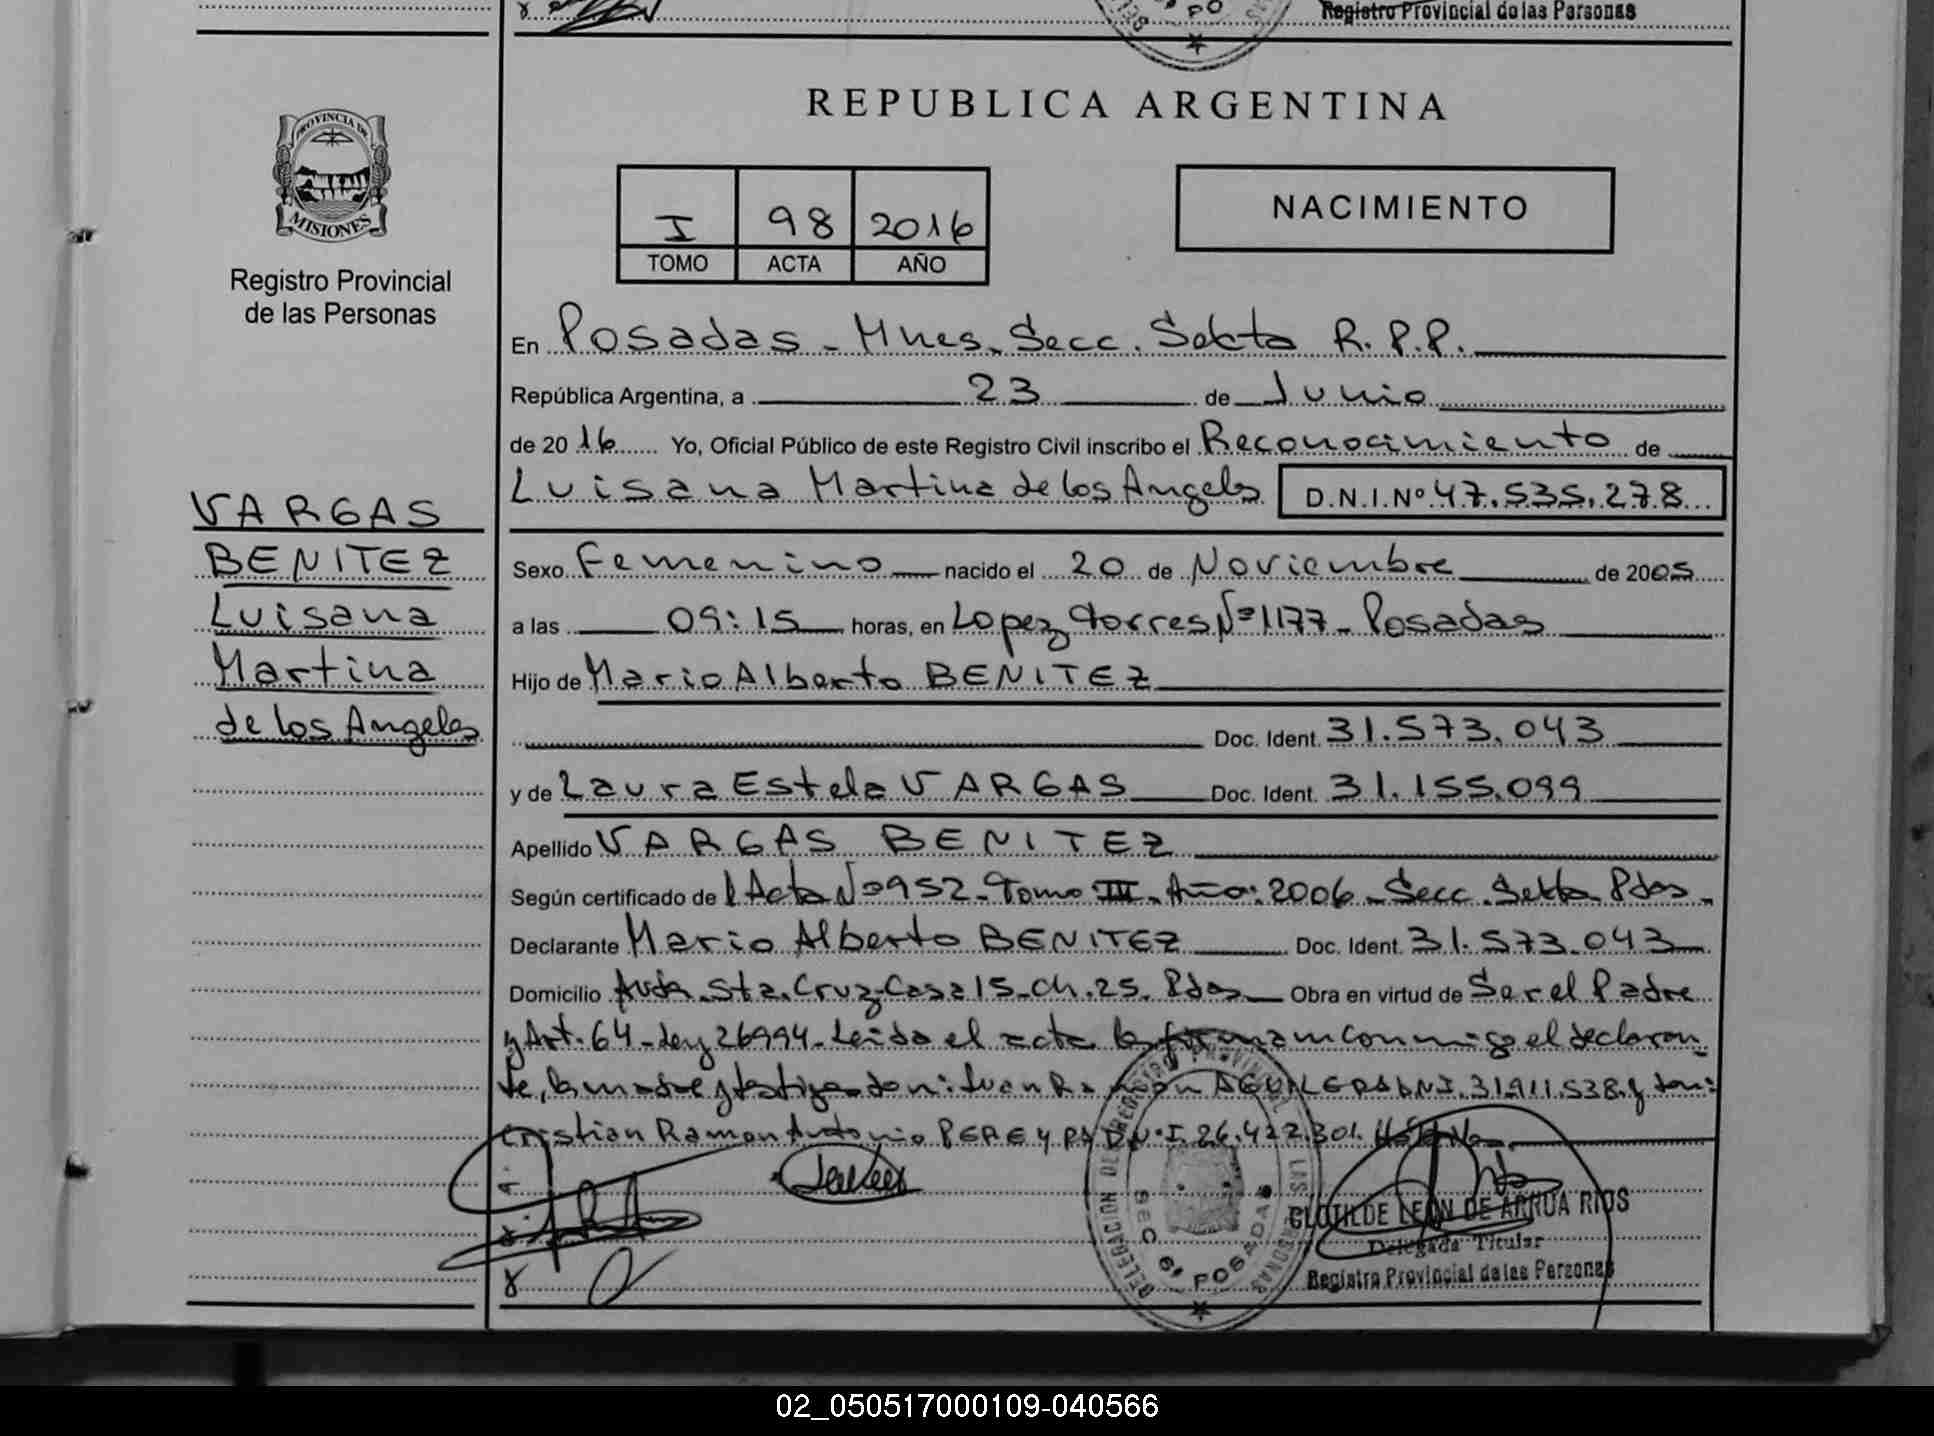 Registro Provincial de las Personas
PROVINCIA DE
MISIONES
Registro Provincial
de las Personas
REPUBLICA ARGENTINA
I 98 2016
TOMO ACTA AÑO
NACIMIENTO
En Posadas - Mnes. Secc. Sekta R.P.P.
República Argentina, a 23 de Junio
de 2016 Yo, Oficial Público de este Registro Civil inscribo el Reconocimiento de
Luisana Martina de los Angeles D.N.I.Nº 47.535.278
VARGAS
BENITEZ
Luisana
Martina
de los Angeles
Sexo Femenino nacido el 20 de Noviembre de 2005
a las 09:15 horas, en Lopez Torres Nº 1177 - Posadas
Hijo de Mario Alberto BENITEZ
Doc. Ident. 31.573.043
y de Laura Estela VARGAS Doc. Ident. 31.155.099
Apellido VARGAS BENITEZ
Según certificado de l Acta Nº 952 - Tomo: III - Año: 2006 - Secc. Sekta Pdas -
Declarante Mario Alberto BENITEZ Doc. Ident. 31.573.043
Domicilio Avda. Sta. Cruz-Casa 15-Ch.25. Pdas Obra en virtud de Ser el Padre
y Art. 64 - Ley 26994 - Leída el acta la firman conmigo el declaran-
te, la madre y testigos don: Juan Ramón AGUILERA DNI. 31.911.538 y don:
Cristian Ramon Antonio PEREYRA D.N.I. 26.422.301.
DELEGACION DE REGISTRO PROVINCIAL DE LAS PERSONAS
SEC 6ª POSADAS
CLOTILDE LEON DE ARRUA RIOS
Delegada Titular
Registro Provincial de las Personas
02_050517000109-040566